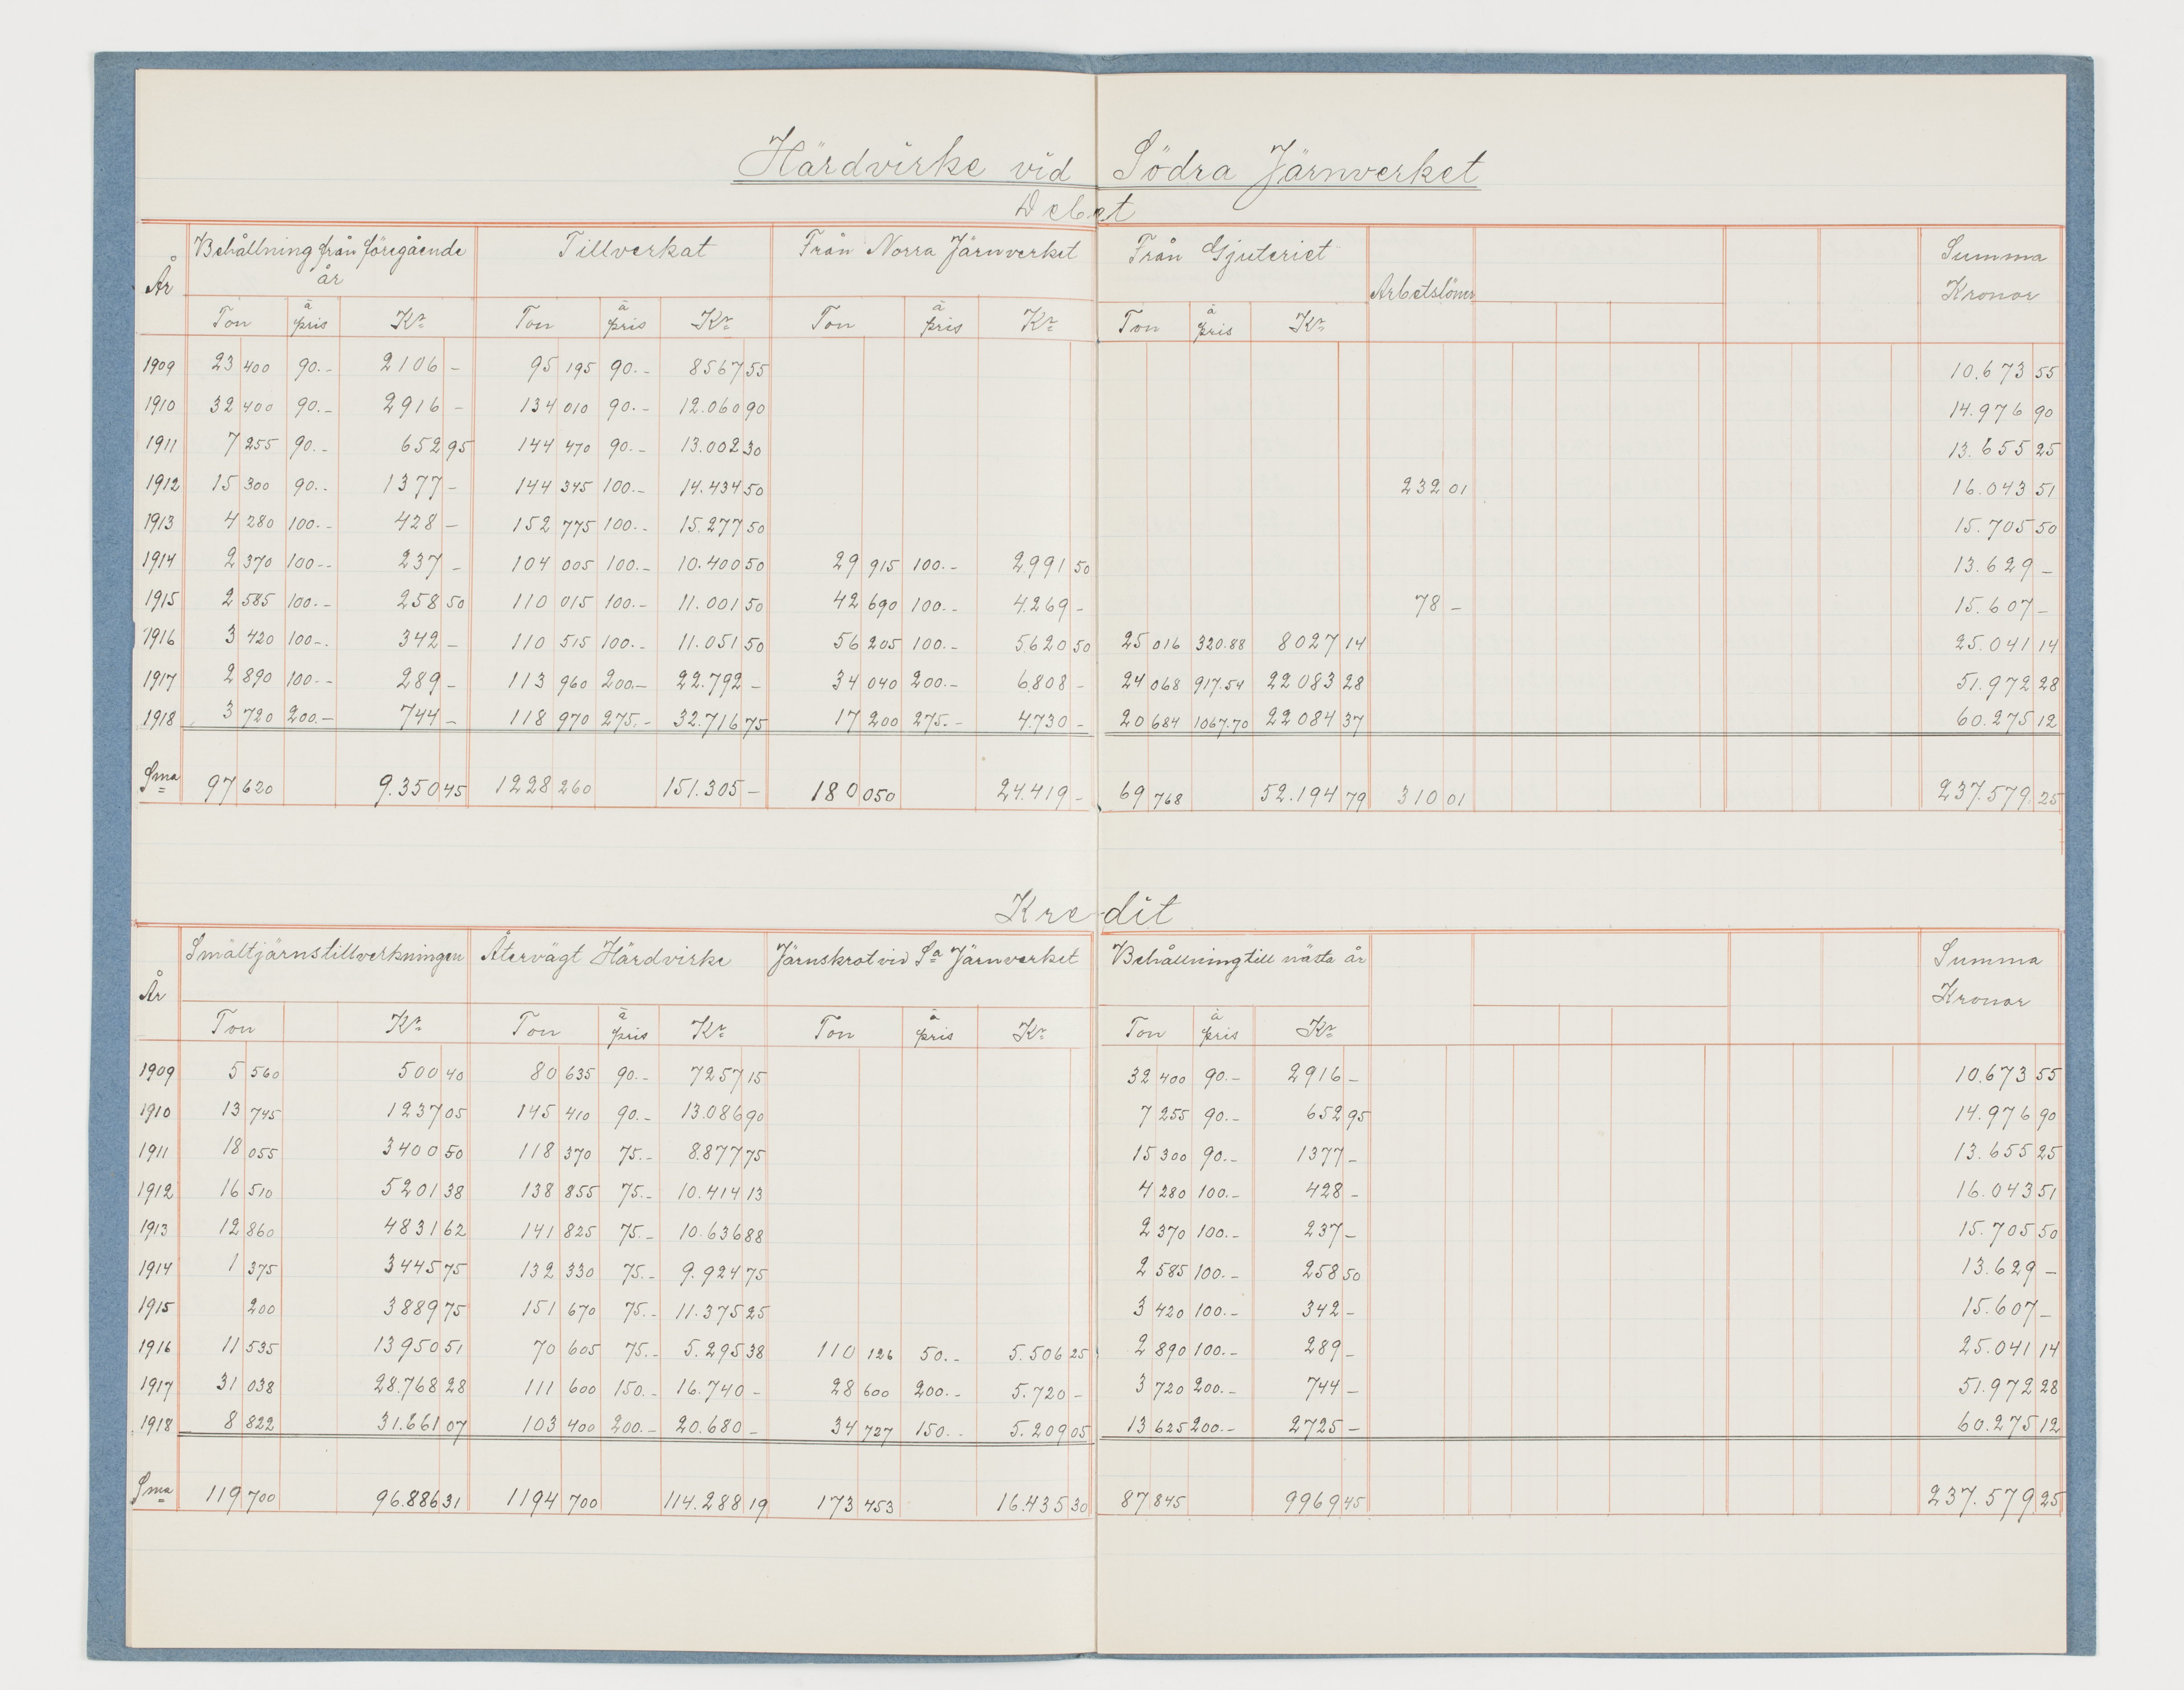 Härdvirke vid Södra Järnverket
Debet
År Behållning från föregående år Tillverkat Från Norra Järnverket Från Gjuteriet Arbetslöner Summa Kronor
Ton à pris Kr Ton à pris Kr Ton à pris Kr Ton à pris Kr
1909 23 400 90.- 2106 - 95 195 90.- 8567 55 10.673 55
1910 32 400 90.- 2916 - 134 010 90.- 12.060 90 14.976 90
1911 7 255 90.- 652 95 144 470 90.- 13.002 30 13.655 25
1912 15 300 90.- 1377 - 144 345 100.- 14.434 50 232 01 16.043 51
1913 4 280 100.- 428 - 152 775 100.- 15.277 50 15.705 50
1914 2 370 100.- 237 - 104 005 100.- 10.400 50 29 915 100.- 2.991 50 13.629 -
1915 2 585 100.- 258 50 110 015 100.- 11.001 50 42 690 100.- 4.269 - 78 - 15.607 -
1916 3 420 100.- 342 - 110 515 100.- 11.051 50 56 205 100.- 5.620 50 25 016 320.88 8027 14 25.041 14
1917 2 890 100.- 289 - 113 960 200.- 22.792 - 34 040 200.- 6.808 - 24 068 917.54 22083 28 51.972 28
1918 3 720 200.- 744 - 118 970 275.- 32.716 75 17 200 275.- 4.730 - 20 684 1067.70 22084 37 60.275 12
Sma 97 620 9.350 45 1228 260 151.305 - 180 050 24.419 - 69 768 52.194 79 310 01 237.579.25
Kredit
År Smältjärnstillverkningen Återvägt Härdvirke Järnskrot vid Sa Järnverket Behållning till nästa år Summa Kronor
Ton Kr Ton à pris Kr Ton à pris Kr Ton à pris Kr
1909 5 560 500 40 80 635 90.- 7257 15 32 400 90.- 2916 - 10.673 55
1910 13 745 1237 05 145 410 90.- 13.086 90 7 255 90.- 652 95 14.976 90
1911 18 055 3400 50 118 370 75.- 8.877 75 15 300 90.- 1377 - 13.655 25
1912 16 510 5201 38 138 855 75.- 10.414 13 4 280 100.- 428 - 16.043 51
1913 12 860 4831 62 141 825 75.- 10.636 88 2 370 100.- 237 - 15.705 50
1914 1 375 3445 75 132 330 75.- 9.924 75 2 585 100.- 258 50 13.629 -
1915 200 3889 75 151 670 75.- 11.375 25 3 420 100.- 342 - 15.607 -
1916 11 535 13950 51 70 605 75.- 5.295 38 110 126 50.- 5.506 25 2 890 100.- 289 - 25.041 14
1917 31 038 28.768 28 111 600 150.- 16.740 - 28 600 200.- 5.720 - 3 720 200.- 744 - 51.972 28
1918 8 822 31.661 07 103 400 200.- 20.680 - 34 727 150.- 5.209 05 13 625 200.- 2725 - 60.275 12
Sma 119 700 96.886 31 1194 700 114.288 19 173 453 16.435 30 87 845 9969 45 237.579 25